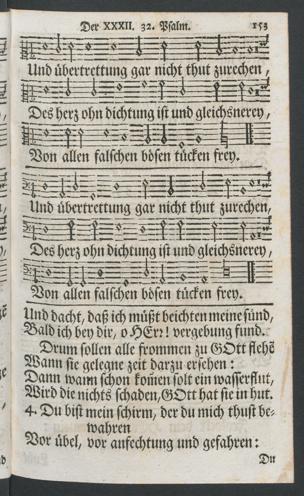 Der XXXII. 32. Psalm. 153
Und übertrettung gar nicht thut zurechen,
Des herz ohn dichtung ist und gleichsnerey,
Von allen falschen bösen tücken frey.
Und übertrettung gar nicht thut zurechen,
Des herz ohn dichtung ist und gleichsnerey,
Von allen falschen bösen tücken frey.
Und dacht, daß ich müßt beichten meine sünd,
Bald ich bey dir, o HErr! vergebung fund.
Drum sollen alle frommen zu GOtt flehē
Wann sie gelegne zeit darzu ersehen:
Dann wann schon kom̄en solt ein wasserflut,
Wird die nichts schaden, GOtt hat sie in hut.
4. Du bist mein schirm, der du mich thust be-
wahren
Vor übel, vor anfechtung und gefahren:
Du